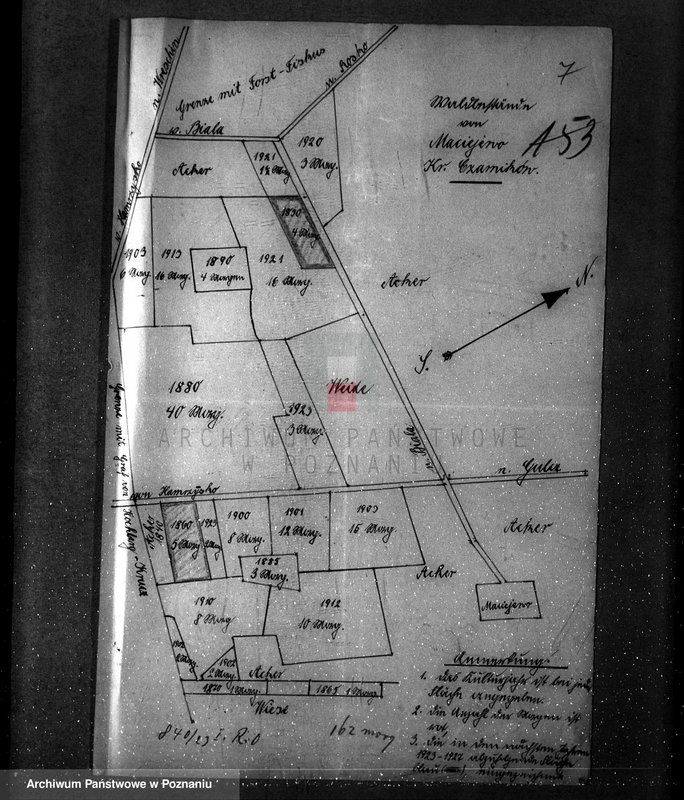 7
Waldbestände
von
Maciejewo
Kr. Czarnikau.
A 53
n. Wreschin
Grenze mit Forst-Fiskus
n. Rosko
v. Biala
n. Hamrzysko
Acker
1921
1½ Morg.
1920
3 Morg.
1830
4 Morg.
1903
6 Morg.
1913
16 Morg.
1890
4 Morgen
1921
16 Morg.
Acker
N.
S.
1880
40 Morg.
Weide
1923
3 Morg.
ARCHIWUM PAŃSTWOWE
W POZNANIU
n. Biala
n. Gulcz
von Hamrzysko
Grenze mit Graf von
Acker
1840
1860
5 Morg.
1923
2 Morg.
1900
8 Morg.
1901
12 Morg.
1903
15 Morg.
Acker
1885
3 Morg.
Acker
Maciejewo
1910
8 Morg.
1912
10 Morg.
1902
2 Morg.
Acker
1870 1 Morg.
1865 1 Morg.
Wiese
Anmerkung:
1. das Kulturjahr ist bei jed.
Fläche angegeben.
2. die Anzahl der Morgen ist
rot,
3. die in den nächsten Jahren
1923-1927 abzuholzende Fläche
blau eingezeichnet
840/23 I. R.O
162 morg
Archiwum Państwowe w Poznaniu